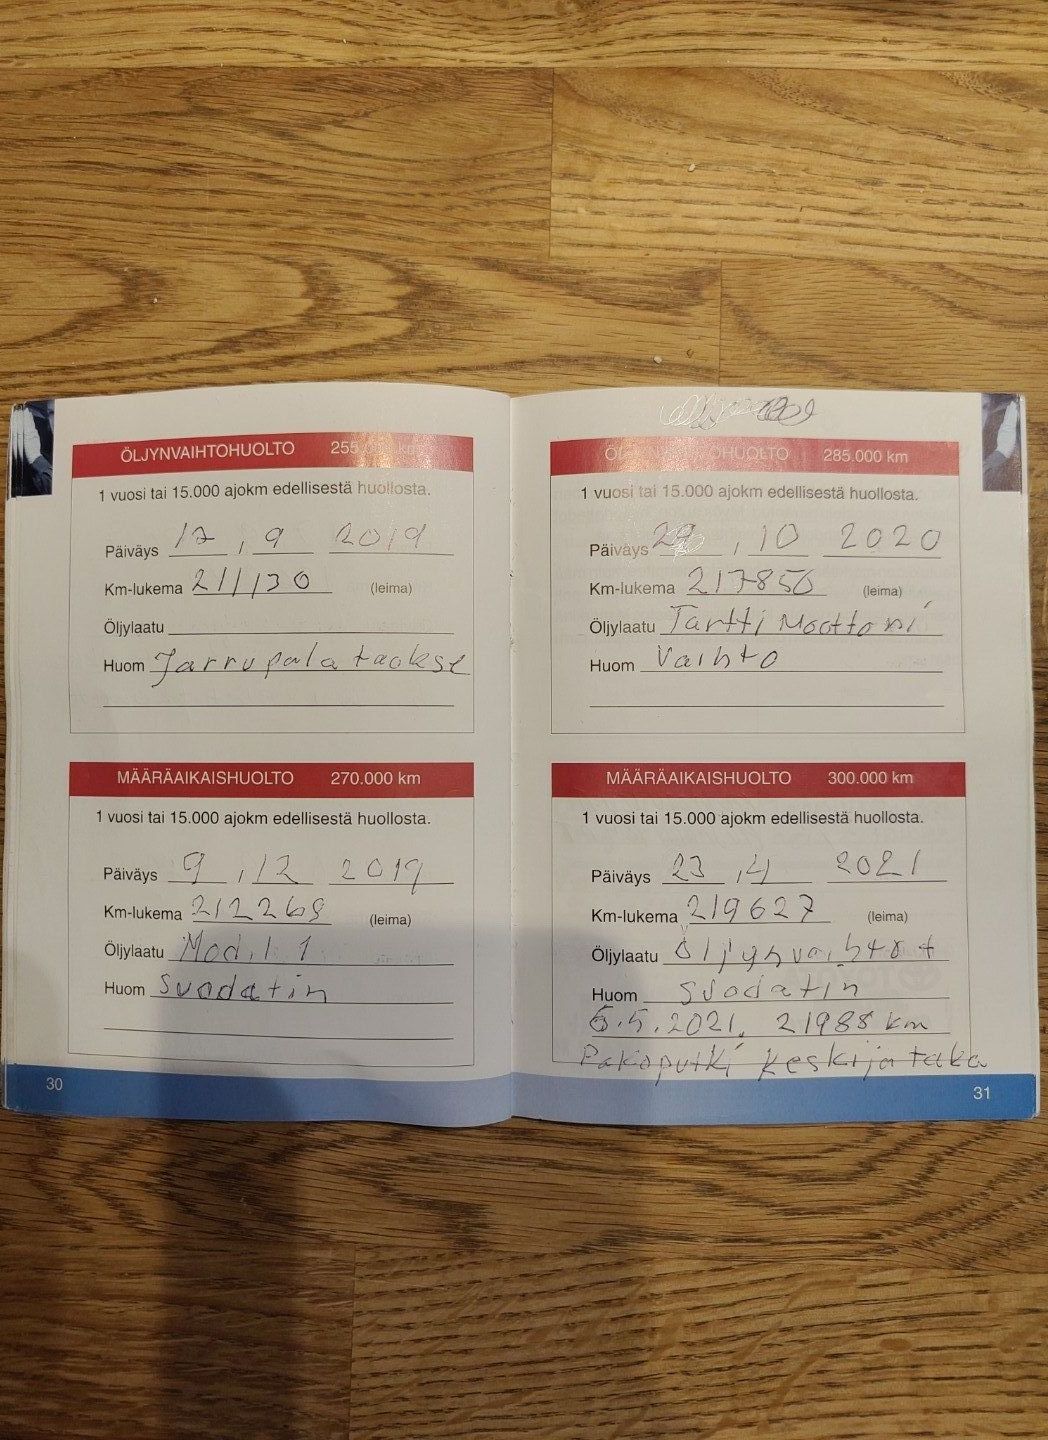 ÖLJYNVAIHTOHUOLTO 255.000 km
1 vuosi tai 15.000 ajokm edellisestä huollosta.
Päiväys 17 , 9 2019
Km-lukema 211130 (leima)
Öljylaatu
Huom Jarrupala taakse
MÄÄRÄAIKAISHUOLTO 270.000 km
1 vuosi tai 15.000 ajokm edellisestä huollosta.
Päiväys 9 , 12 2019
Km-lukema 212268 (leima)
Öljylaatu Mobil 1
Huom Suodatin
30
ÖLJYNVAIHTOHUOLTO 285.000 km
1 vuosi tai 15.000 ajokm edellisestä huollosta.
Päiväys 29 , 10 2020
Km-lukema 217850 (leima)
Öljylaatu Tartti Moottori
Huom Vaihto
MÄÄRÄAIKAISHUOLTO 300.000 km
1 vuosi tai 15.000 ajokm edellisestä huollosta.
Päiväys 23 , 4 2021
Km-lukema 219627 (leima)
Öljylaatu Öljynvaihto +
Huom Suodatin
6.5.2021. 21988 km
Pakoputki keski ja taka
31